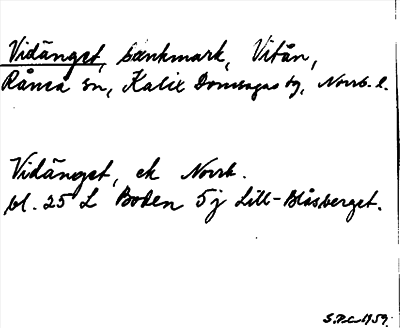 Vidänget, sankmark, Vitån,
Råneå sn, Kalix Domsagas tg, Norrb. l.
Vidänget, ek Norrb.
bl. 25 L Boden 5 j Lill-Blåsberget.
1959